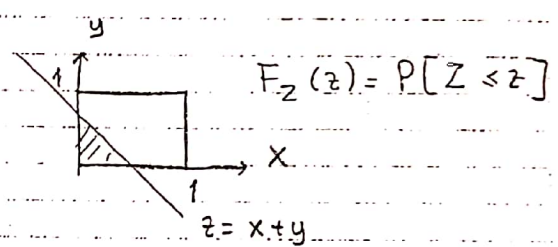 y
1
F_Z (z) = P[Z ≤ z]
x
1
z = x + y